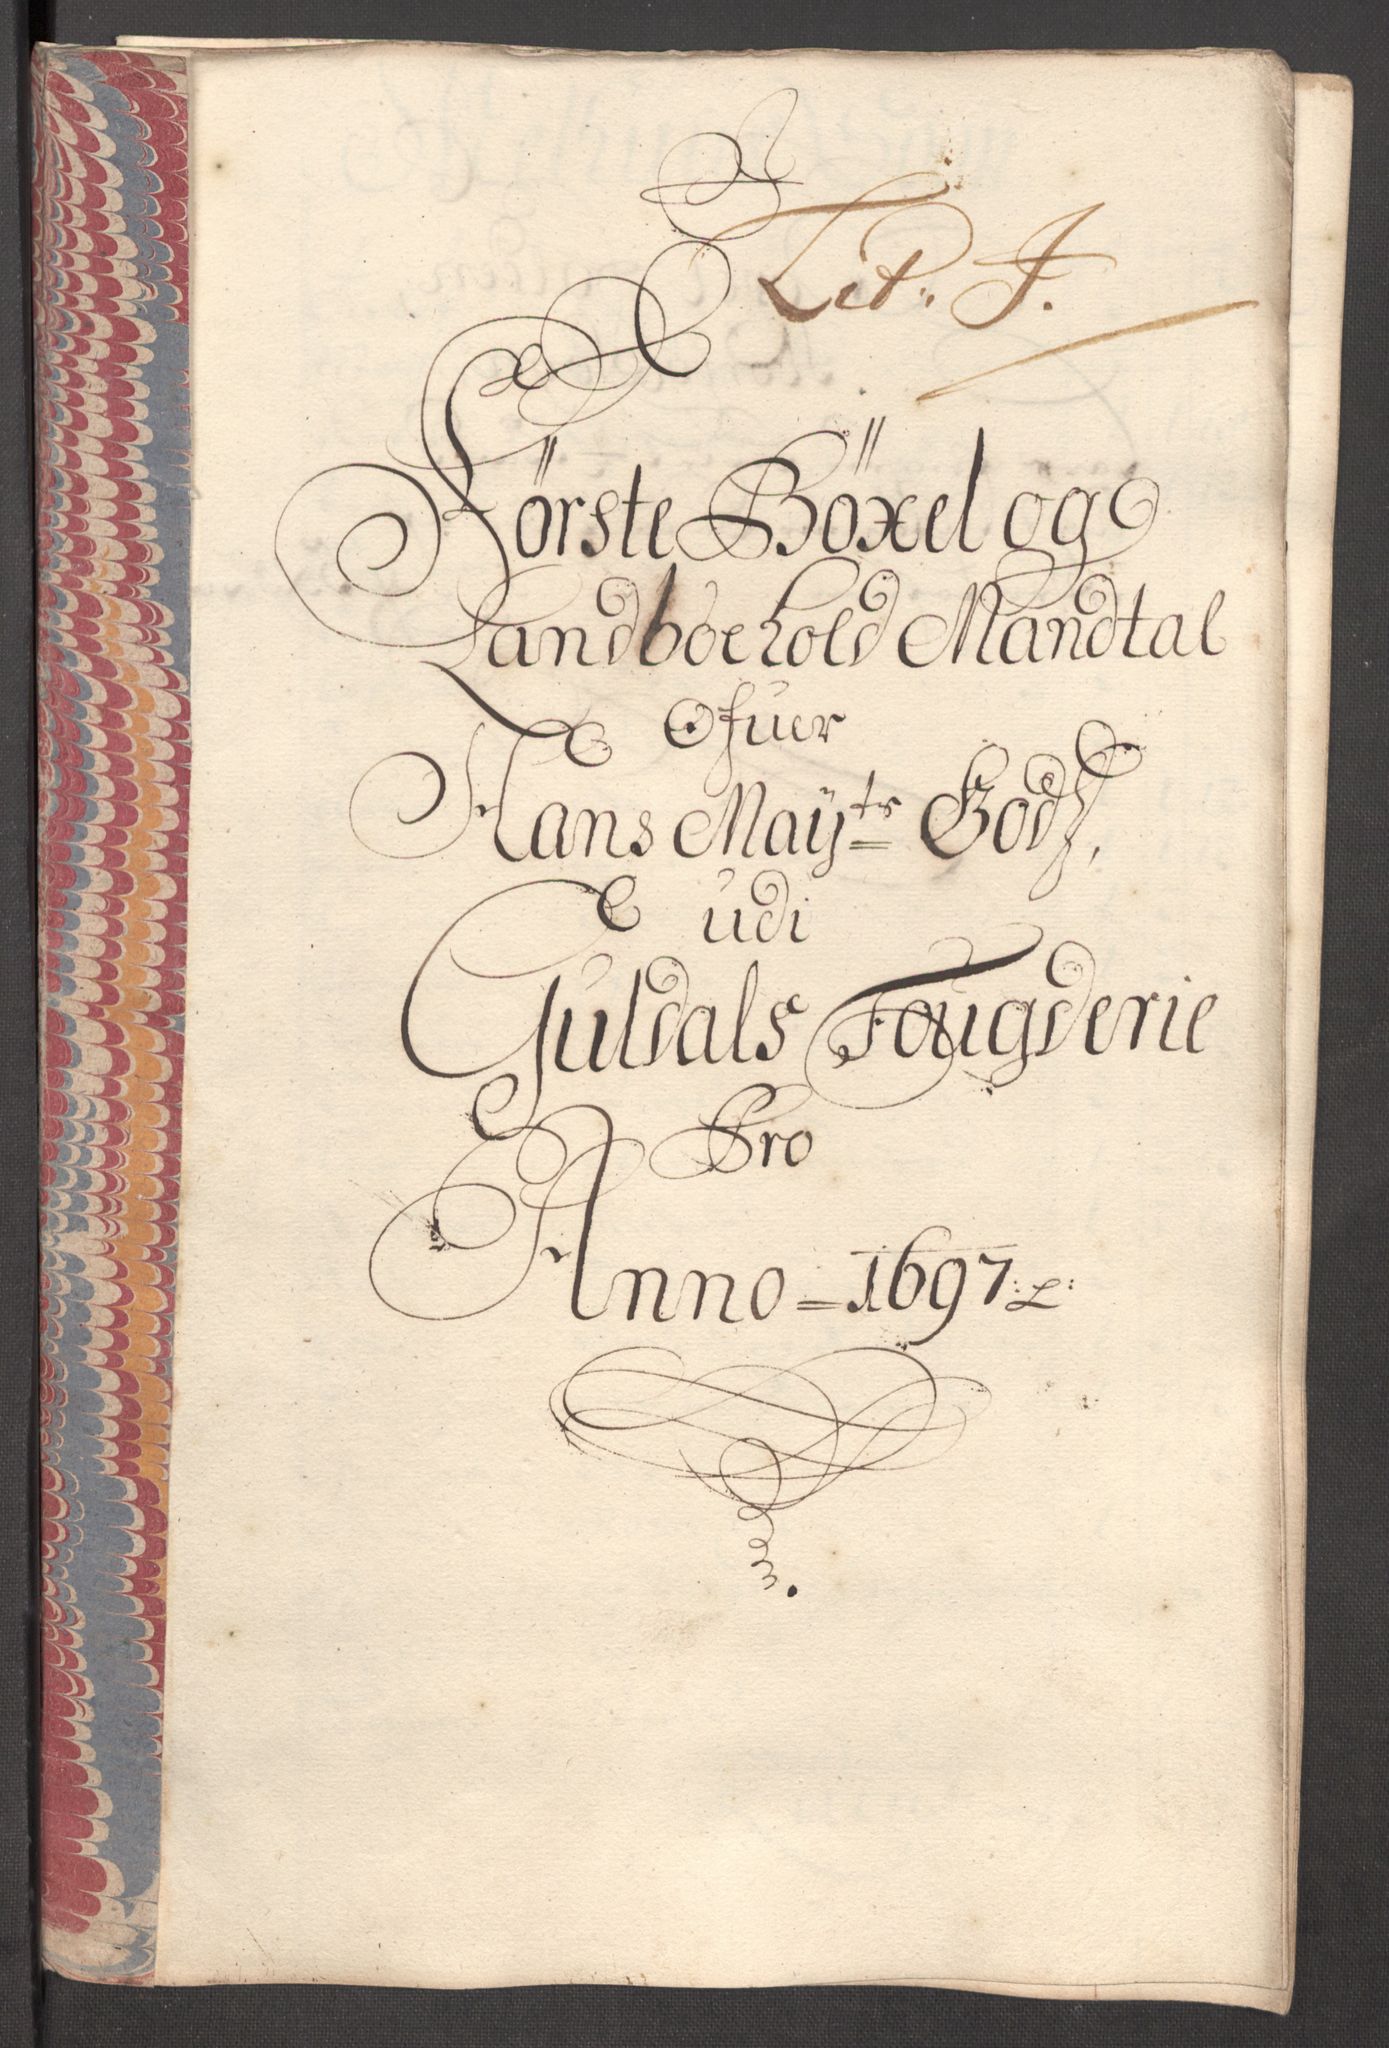 Lit: J.
Förste Böxel og
Landboehold Mandtal
ofuer
Hans Maÿ.ts Godz,
udi
Guldals Fougderie
Pro
Anno = 1697: